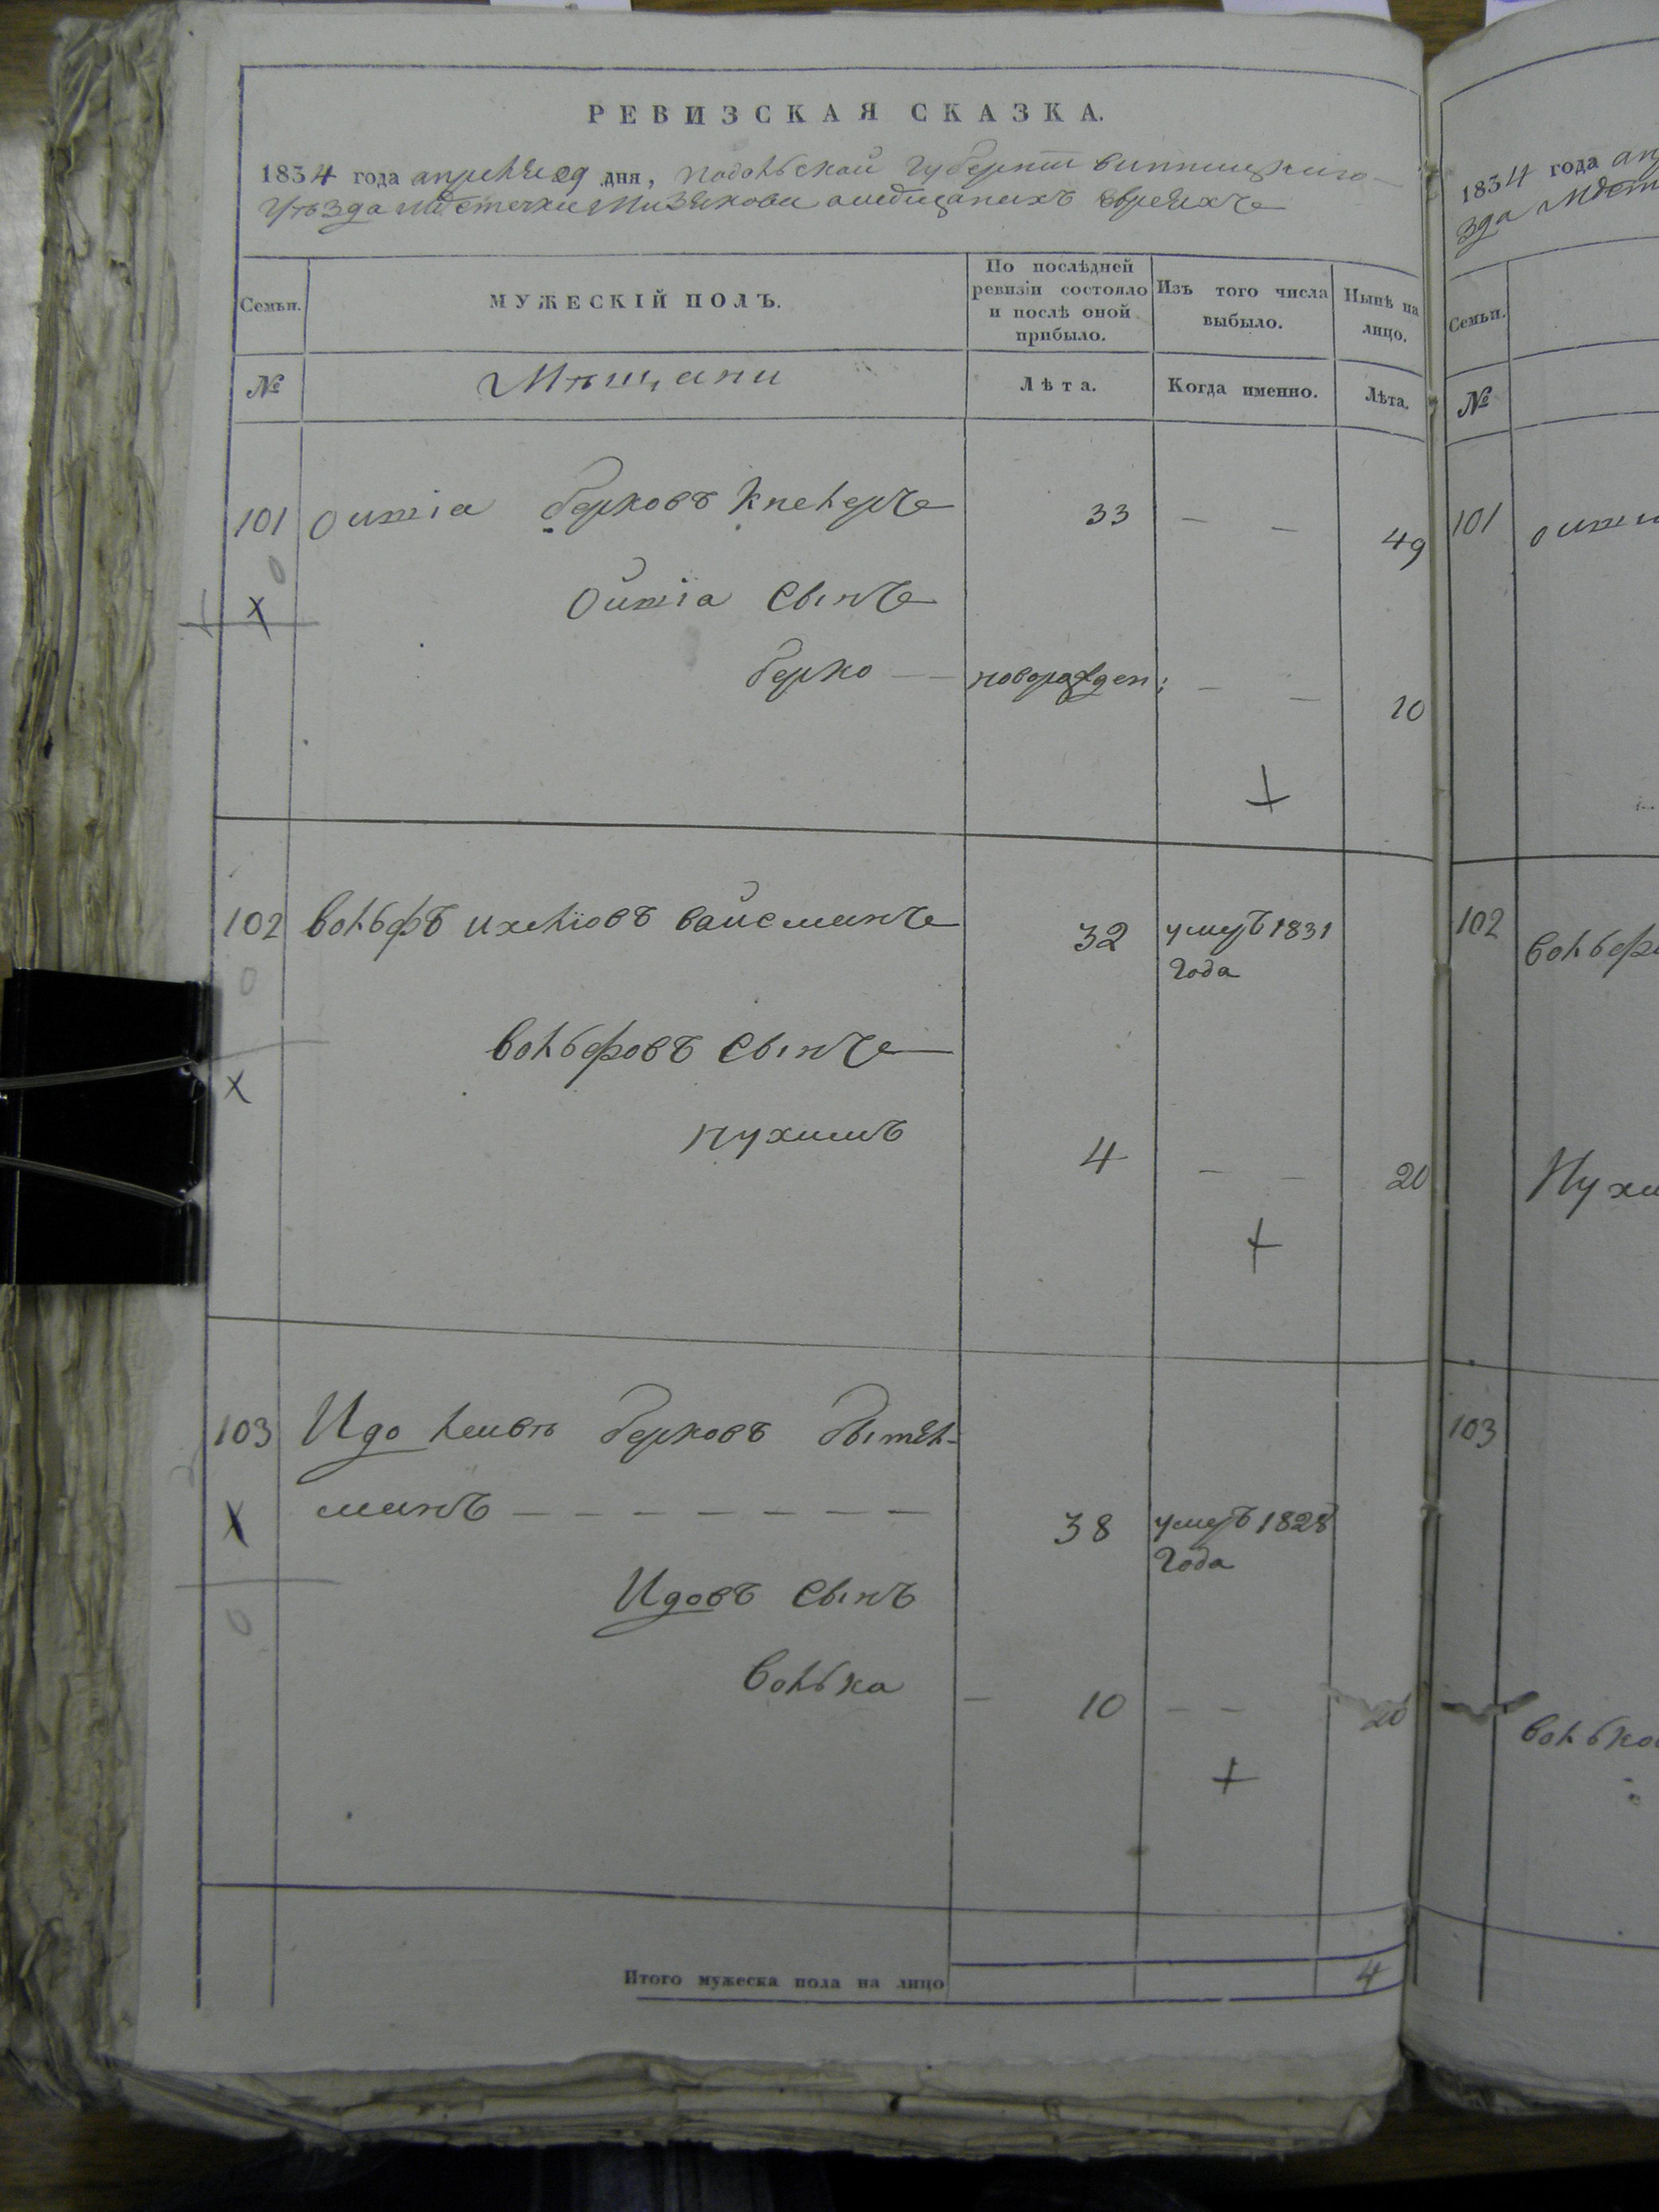 РЕВИЗСКАЯ СКАЗКА.
1834 года апреля 29 дня, подольской губернии винницкого
уѣзда мѣстечка Мизякова о мѣщанахъ евреяхъ
Семьи. МУЖЕСКІЙ ПОЛЪ. По послѣдней ревизіи состояло и послѣ оной прибыло. Изъ того числа выбыло. Нынѣ на лицо.
№ Мѣщани Лѣта. Когда именно. Лѣта.
101 ошіа берковъ кнелеръ 33 — — 49
ошіа сынъ
берко — — новорожден: — — 10
102 вольфъ ихелiовъ вайсманъ 32 умеръ 1831
года
вольфовъ сынъ
нухимъ 4 — — 20
103 Идо лейвъ берковъ бытель-
манъ — — — — — — — 38 умеръ 1828
года
Идовъ сынъ
волька — 10 — — 20
Итого мужеска пола на лицо 4
1834 года
№
101
102
103